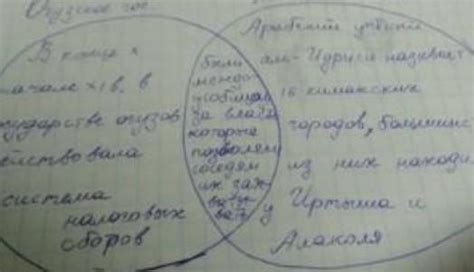 Огузское гос
В конце X
начале XI в. в
сударстве огузов
ействовала
система
налоговых
сборов
были
междо
усобицы
за власть
которые
позволяли
соседям
их зах
ваты
вать
Арабский учёный
ал-Идриси называет
16 кимакских
городов, большинс
из них находи
у Иртыша и
Алаколя